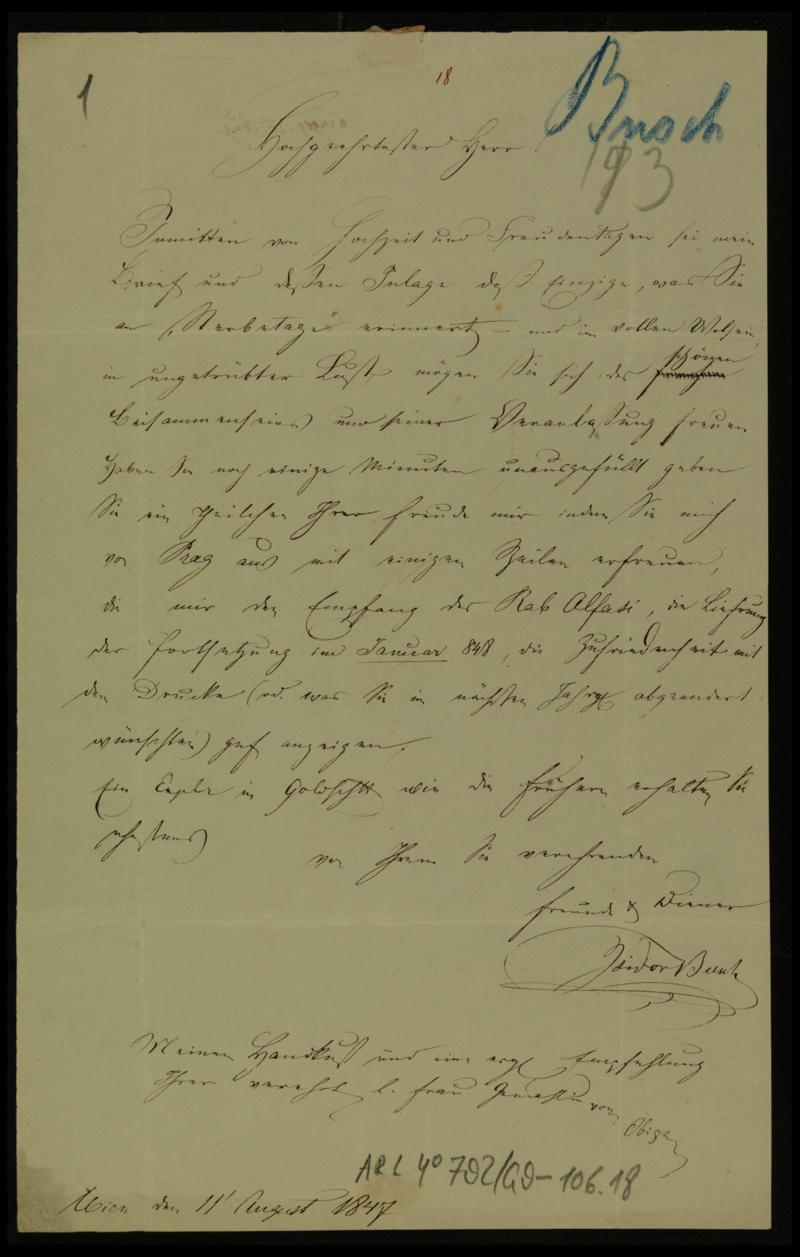 1
18
Busch
193
Hochgeehrtester Herr!
Inmitten von Hochzeit und Freudentagen sei mein
Brief und dessen Inlage daß Einzige, was Sie
an „Sterbetage" erinnert – und im vollen Wolsein,
in ungetrübter Lust mögen Sie sich des schönen
Beisammenseins und seiner Veranlassung freuen.
Haben Sie noch einige Minuten unausgefüllt geben
Sie ein Theilchen Ihrer Freude mir indem Sie mich
von Prag aus mit einigen Zeilen erfreuen,
die mir den Empfang des Rab Alfasi, die Lieferung
der Fortsetzung im Januar 848, die Zufriedenheit mit
den Drucke (od. was Sie im nächsten Jahrg abgeändert
wünschten) gef anzeigen.
Ein Explr in Goldschtt wie die frühern erhalten Sie
ehestens
von Ihrem Sie verehrenden
Freunde & Diener
Isidor Busch
Meinen Handkuß und eine erg Empfehlung
Ihrer verehrt l. Frau Gemahlin von
Obigen
ARC 4° 792/G9-106.18
Wien den 11' August 1847